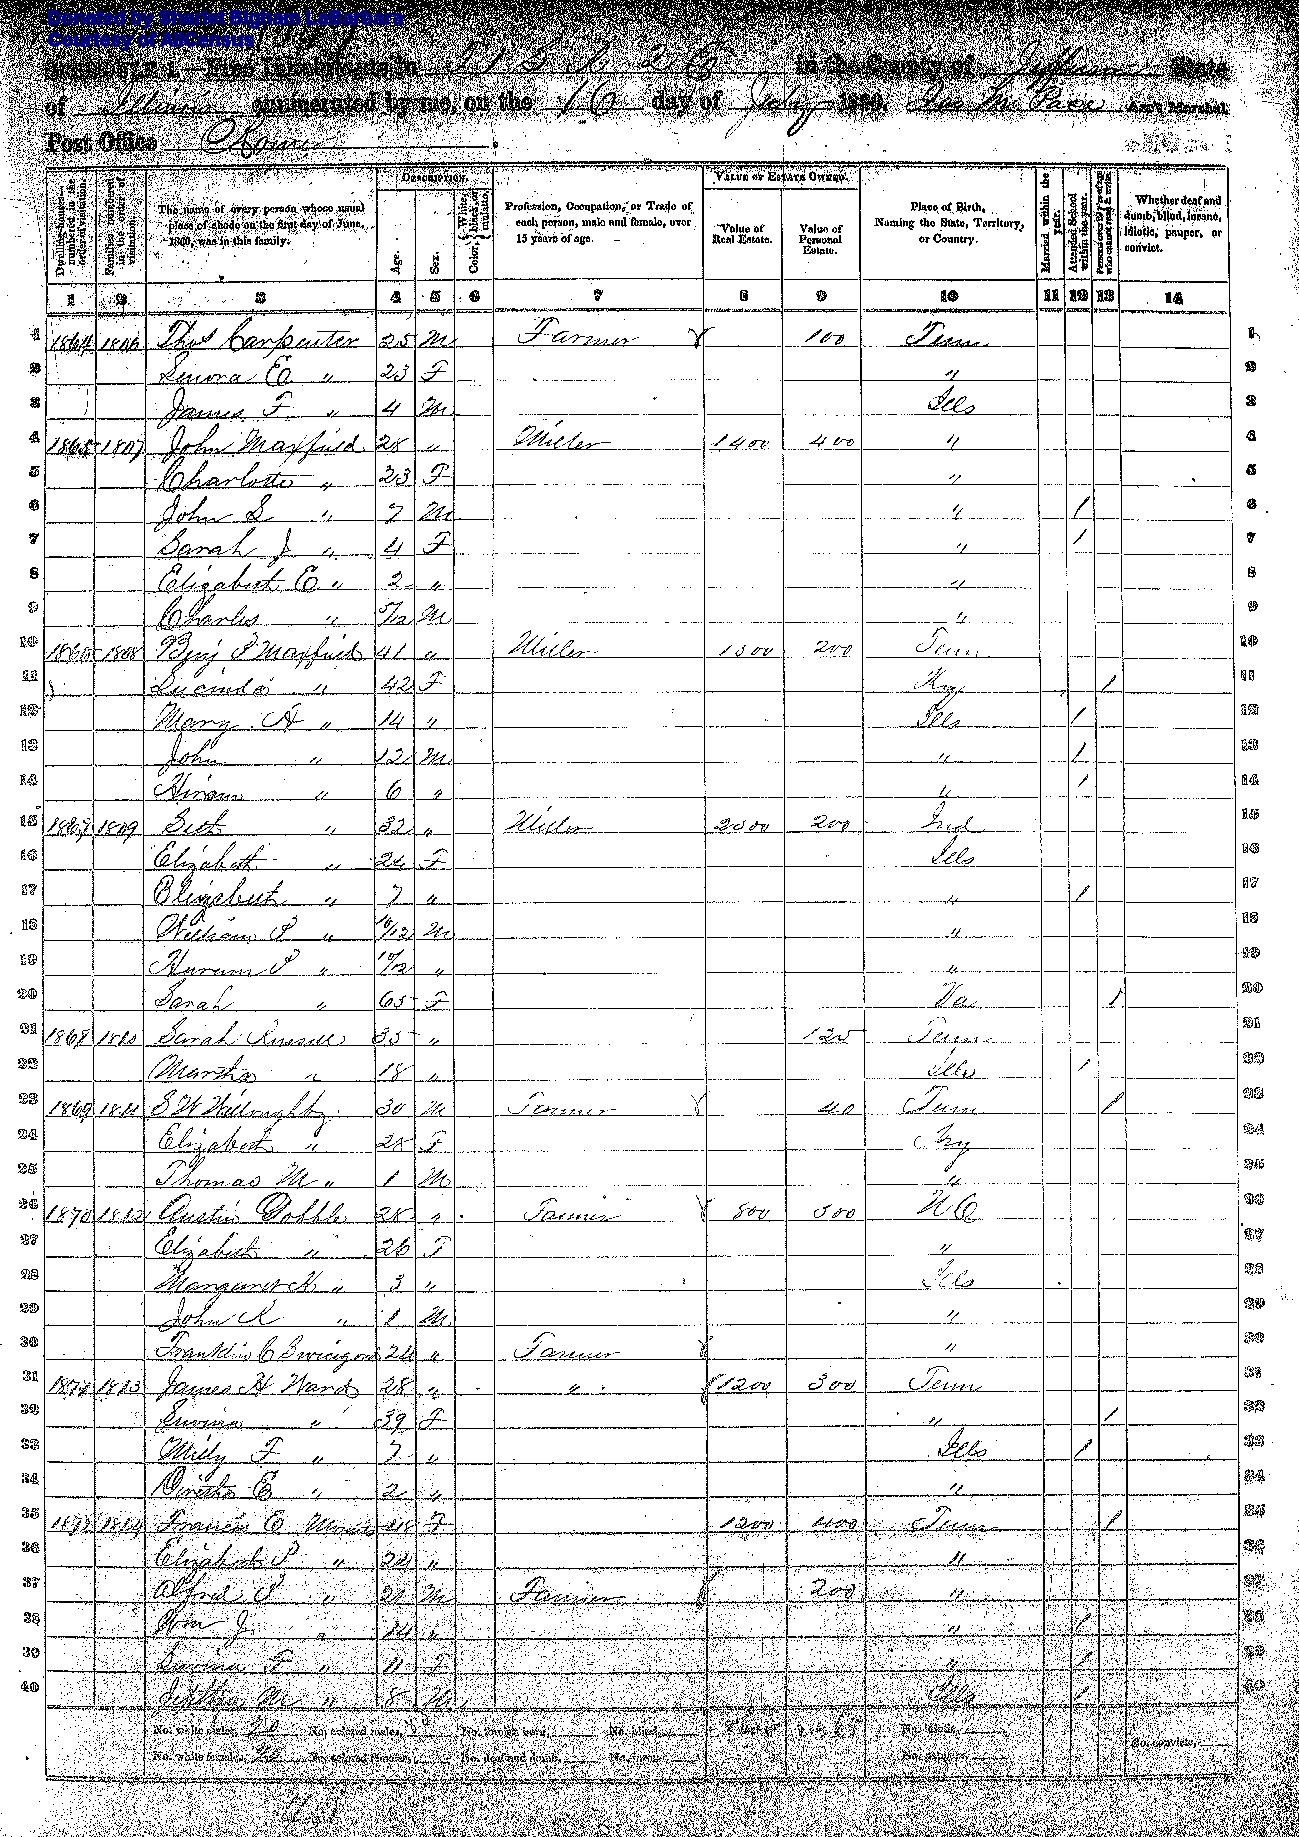 Donated by Sharlet Bigham LaBarbara
Courtesy of AllCensus
SCHEDULE 1.—Free Inhabitants in T 1 S R 2 E in the County of Jefferson State
of Illinois enumerated by me, on the 16 day of July 1860. Ass't Marshal.
Post Office Rome
Dwelling-houses numbered in the order of visitation. Families numbered in the order of visitation. The name of every person whose usual place of abode on the first day of June, 1860, was in this family. Description. Age. Sex. Color, White, black, or mulatto. Profession, Occupation, or Trade of each person, male and female, over 15 years of age. Value of Estate Owned. Value of Real Estate. Value of Personal Estate. Place of Birth, Naming the State, Territory, or Country. Married within the year. Attended School within the year. Persons over 20 y'rs of age who cannot read & write. Whether deaf and dumb, blind, insane, idiotic, pauper, or convict.
1 2 3 4 5 6 7 8 9 10 11 12 13 14
1 1864 1806 Thos Carpenter 25 M Farmer 100 Tenn 1
2 E " 23 F " 2
3 James F. " 4 M Ills 3
4 1865 1807 John Maxfield 28 " Miller 1400 400 " 4
5 Charlotte " 23 F " 5
6 John S " 7 M " 1 6
7 Sarah J " 4 F " 1 7
8 Elizabeth E " 2 " " 8
9 Charles " 5/12 M " 9
10 1866 1808 Benj P Maxfield 41 " Miller 1500 200 Tenn 10
11 Lucinda " 42 F Ky 1 11
12 Mary A " 14 " Ills 1 12
13 John " 12 M " 1 13
14 Hiram " 6 " " 1 14
15 1867 1809 " 32 " Miller 2500 200 Ind 15
16 Elizabeth " 24 F Ills 16
17 Elizabeth " 7 " " 1 17
18 William P " 10/12 M " 18
19 Hiram P " 10/12 " " 19
20 Sarah " 65 F Va 1 20
21 1868 1810 Sarah Russell 35 " 125 Tenn 21
22 Martha " 18 " Ills 1 22
23 1869 1811 S W Willoughby 30 M Farmer 40 Tenn 1 23
24 Elizabeth " 28 F Ky 24
25 Thomas M " 1 M " 25
26 1870 1812 Austin Gobble 28 " Farmer 800 300 N C 26
27 Elizabeth " 26 F " 27
28 Margaret K " 3 " Ills 28
29 John R " 1 M " 29
30 Franklin C 24 " Farmer " 30
31 1871 1813 James H Ward 28 " " 1200 300 Tenn 31
32 " 39 F " 1 32
33 Milly F " 7 " Ills 1 33
34 E " 2 " " 34
35 1872 1814 E F 1200 400 Tenn 1 35
36 Elizabeth P " 24 " " 36
37 Alfred P " 21 M Farmer 200 " 37
38 Wm J " 14 " " 1 38
39 F " 11 F " 1 39
40 M " 8 M Ills 1 40
No. white males, 20 No. colored males, No. foreign born, No. blind, No. idiotic,
No. white females, No. colored females, No. deaf and dumb, No. insane, No. paupers, No. convicts,